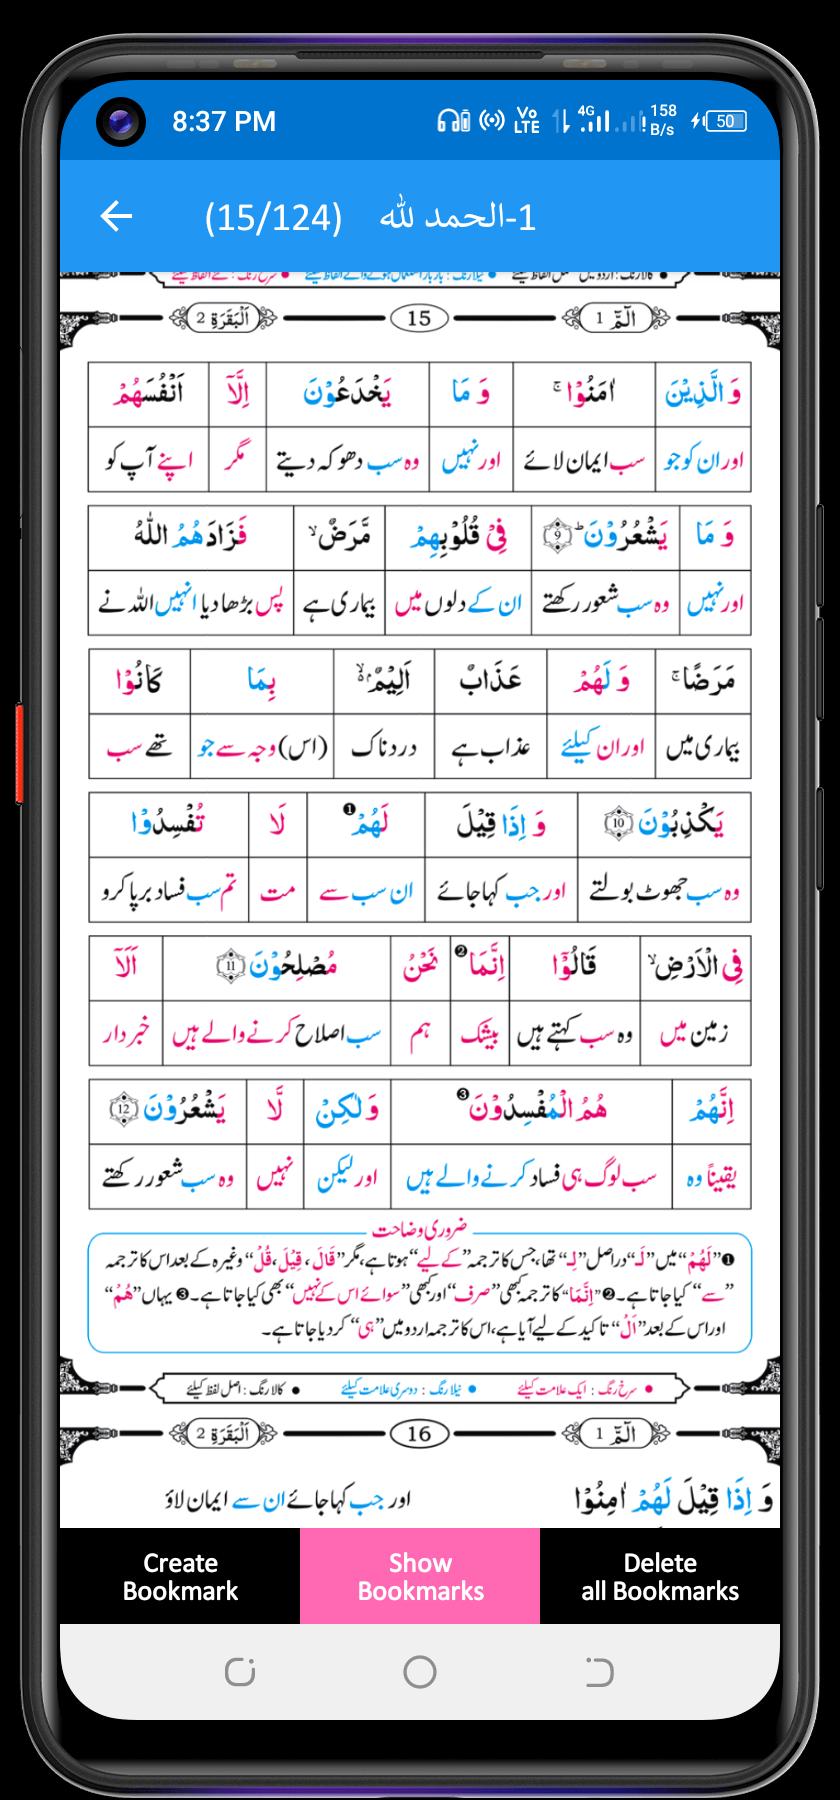 8:37 PM Vo LTE 4G 158 B/s 50
(15/124) 1-الحمد لله
الٓمّٓ 1 15 اَلْبَقَرَةِ 2
وَ الَّذِيْنَ اٰمَنُوْا ۚ وَ مَا يَخْدَعُوْنَ اِلَّاۤ اَنْفُسَهُمْ
اور ان کو جو سب ایمان لائے اور نہیں وہ سب دھوکہ دیتے مگر اپنے آپ کو
وَ مَا يَشْعُرُوْنَ ؕ 9 فِيْ قُلُوْبِهِمْ مَّرَضٌ ۙ فَزَادَهُمُ اللّٰهُ
اور نہیں وہ سب شعور رکھتے ان کے دلوں میں بیماری ہے پس بڑھا دیا انہیں اللہ نے
مَرَضًا ۚ وَ لَهُمْ عَذَابٌ اَلِيْمٌۢ ۙ بِمَا كَانُوْا
بیماری میں اور ان کیلئے عذاب ہے دردناک (اس) وجہ سے جو تھے سب
يَكْذِبُوْنَ 10 وَ اِذَا قِيْلَ لَهُمْ ❶ لَا تُفْسِدُوْا
وہ سب جھوٹ بولتے اور جب کہا جائے ان سب سے مت تم سب فساد برپا کرو
فِي الْاَرْضِ ۙ قَالُوْۤا اِنَّمَا ❷ نَحْنُ مُصْلِحُوْنَ 11 اَلَاۤ
زمین میں وہ سب کہتے ہیں بیشک ہم سب اصلاح کرنے والے ہیں خبردار
اِنَّهُمْ هُمُ الْمُفْسِدُوْنَ ❸ وَ لٰكِنْ لَّا يَشْعُرُوْنَ 12
یقیناً وہ سب لوگ ہی فساد کرنے والے ہیں اور لیکن نہیں وہ سب شعور رکھتے
ضروری وضاحت
❶ ”لَهُمْ“ میں ”لَـ“ دراصل ”لِـ“ تھا، جس کا ترجمہ ”کے لیے“ ہوتا ہے، مگر ”قَالَ، قِيْلَ، قُلْ“ وغیرہ کے بعد اس کا ترجمہ
”سے“ کیا جاتا ہے۔ ❷ ”اِنَّمَا“ کا ترجمہ کبھی ”صرف“ اور کبھی ”سوائے اس کے نہیں“ بھی کیا جاتا ہے۔ ❸ یہاں ”هُمْ“
اور اس کے بعد ”اَلْ“ تاکید کے لیے آیا ہے، اس کا ترجمہ اردو میں ”ہی“ کر دیا جاتا ہے۔
● سرخ رنگ : ایک علامت کیلئے ● نیلا رنگ : دوسری علامت کیلئے ● کالا رنگ : اصل لفظ کیلئے
الٓمّٓ 1 16 اَلْبَقَرَةِ 2
وَ اِذَا قِيْلَ لَهُمْ اٰمِنُوْا اور جب کہا جائے ان سے ایمان لاؤ
Create Bookmark
Show Bookmarks
Delete all Bookmarks